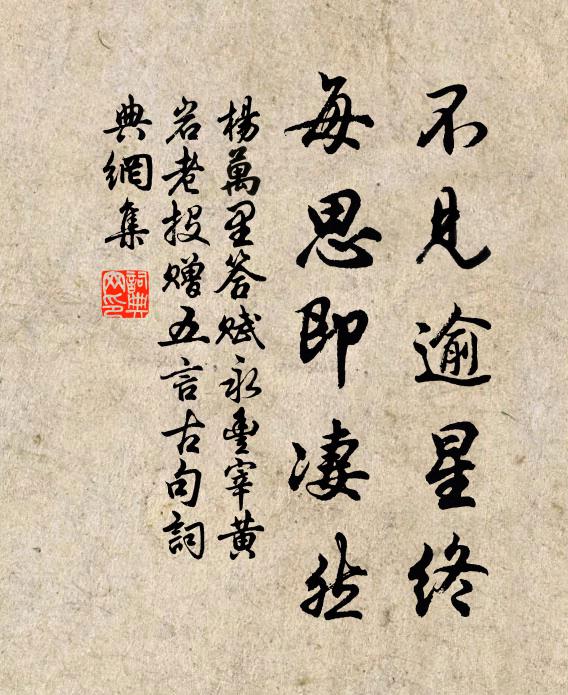 不見逾星終
每思即凄然
楊萬里答賦永豐宰黃
岩老投贈五言古句詞
典網集
詞典
网印